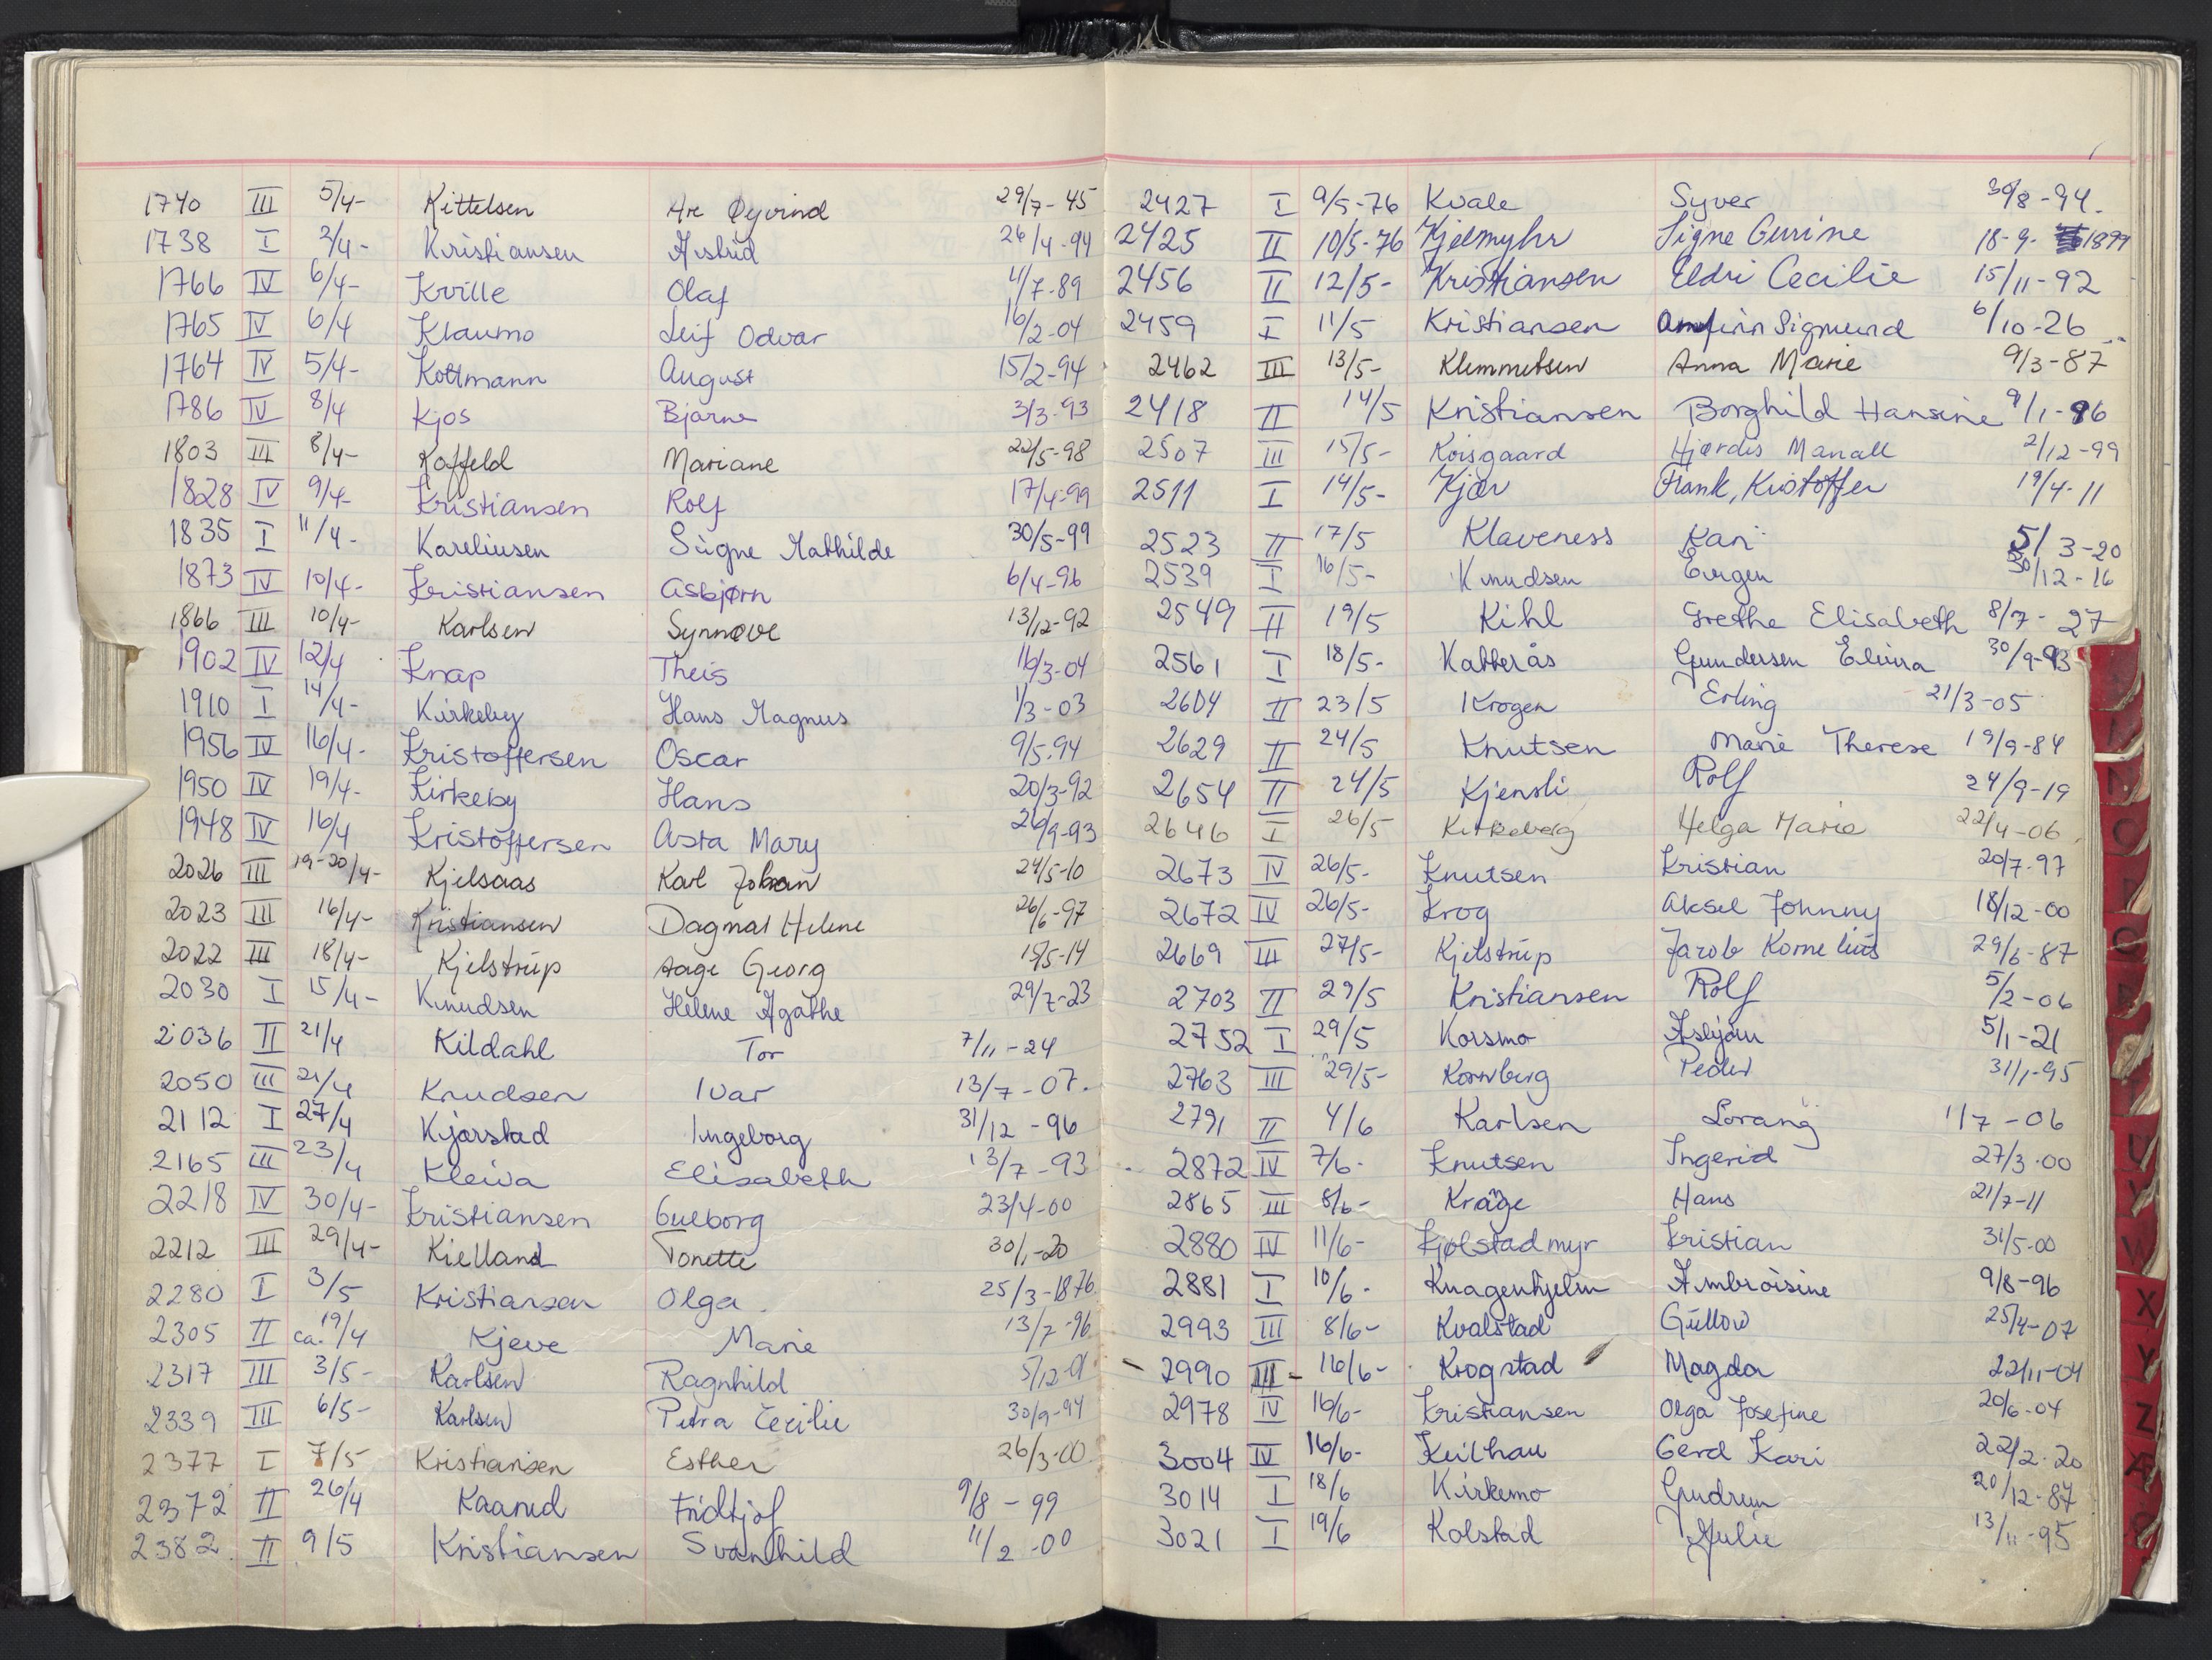 1740 III 5/4- Kittelsen Are Øyvind 29/7-45
1738 I 2/4- Kristiansen Astrid 26/4-94
1766 IV 6/4- Kville Olaf 4/7-89
1765 IV 6/4 Klaumo Leif Odvar 16/2-04
1764 IV 5/4- Kottmann August 15/2-94
1786 IV 8/4 Kjos Bjarne 3/3-93
1803 III 8/4- Koffeld Mariane 22/5-98
1828 IV 9/4- Kristiansen Rolf 17/4-99
1835 I 11/4- Kareliusen Signe Mathilde 30/5-99
1873 IV 10/4- Kristiansen Asbjørn 6/4-96
1866 III 10/4- Karlsen Synnøve 13/12-92
1902 IV 12/4 Knap Theis 16/3-04
1910 I 14/4- Kirkeby Hans Magnus 1/3-03
1956 IV 16/4- Kristoffersen Oscar 9/5.94
1950 IV 19/4- Kirkeby Hans 20/3-92
1948 IV 16/4 Kristoffersen Asta Mary 26/9-93
2026 III 19-20/4- Kjelsaas Karl Johan 24/5-10
2023 III 16/4- Kristiansen Dagmar Helene 26/6-97
2022 III 18/4- Kjelstrup Aage Georg 15/5-14
2030 I 15/4- Knudsen Helene Agathe 29/7-23
2036 II 21/4 Kildahl Tor 7/11-24
2050 III 21/4 Knudsen Ivar 13/7-07.
2112 I 27/4 Kjørstad Ingeborg 31/12-96
2165 III 23/4 Kleiva Elisabeth 13/7-93
2218 IV 30/4- Kristiansen Gulborg 23/4-00
2212 III 29/4- Kielland Tonette 30/1-20
2280 I 3/5 Kristiansen Olga. 25/3-1876.
2305 II ca. 19/4 Kjeve Marie 13/7-96
2317 III 3/5- Karlsen Ragnhild 5/12-01
2339 III 6/5- Karlsen Petra Cecilie 30/9-94
2377 I 7/5 Kristiansen Esther 26/3-00.
2372 II 26/4 Kaarud Fridtjof 9/8-99
2382 II 9/5 Kristiansen Svanhild 11/2-00
2427 I 9/5-76 Kvale Syver 30/8-94.
2425 II 10/5-76 Kjelmyhr Signe Gurine 18-9. 1899
2456 II 12/5- Kristiansen Eldri Cecilie 15/11-92
2459 I 11/5 Kristiansen Arnfinn Sigmund 6/10-26
2462 III 13/5- Klemmetsen Anna Marie 9/3-87
2418 II 14/5 Kristiansen Borghild Hansine 9/1-96
2507 III 15/5- Koisgaard Hjørdis Manall 2/12-99
2511 I 14/5- Kjær Frank, Kristoffer 19/4-11
2523 II 17/5 Klaveness Kari 5/3-20
2539 I 16/5- Knudsen Eugen 30/12-16
2549 II 19/5 Kihl Grethe Elisabeth 8/7-27
2561 I 18/5- Katterås Gundersen Elvira 30/9-93
2604 II 23/5 Krogen Erling 21/3-05
2629 II 24/5 Knutsen Marie Therese 19/9-84
2654 II 24/5 Kjensli Rolf 24/9-19
2646 I 26/5 Kirkeberg Helga Marie 22/4-06
2673 IV 26/5- Knutsen Kristian 20/7-97
2672 IV 26/5- Krog Aksel Johnny 18/12-00
2669 III 27/5- Kjelstrup Jacob Kornelius 29/6-87
2703 II 29/5 Kristiansen Rolf 5/2-06
2752 I 29/5 Korsmo Asbjørn 5/1-21
2763 III 29/5- Kornberg Peder 31/1-95
2791 II 4/6 Karlsen Lorang 1/7-06
2872 IV 7/6- Knutsen Ingerid 27/3-00
2865 III 8/6- Kråge Hans 21/7-11
2880 IV 11/6- Kjølstadmyr Kristian 31/5-00
2881 I 10/6- Knagenhjelm Ambroisine 9/8-96
2993 III 8/6- Kvalstad Gullow 25/4-07
2990 III- 16/6- Krogstad Magda 22/11-04
2978 IV 16/6- Kristiansen Olga Josefine 20/6-04
3004 IV 16/6- Keilhau Gerd Kari 22/2-20
3014 I 18/6 Kirkemo Gudrun 20/12-87
3021 I 19/6 Kolstad Julie 13/11-95
U
V
W
X
Y
Z
Æ